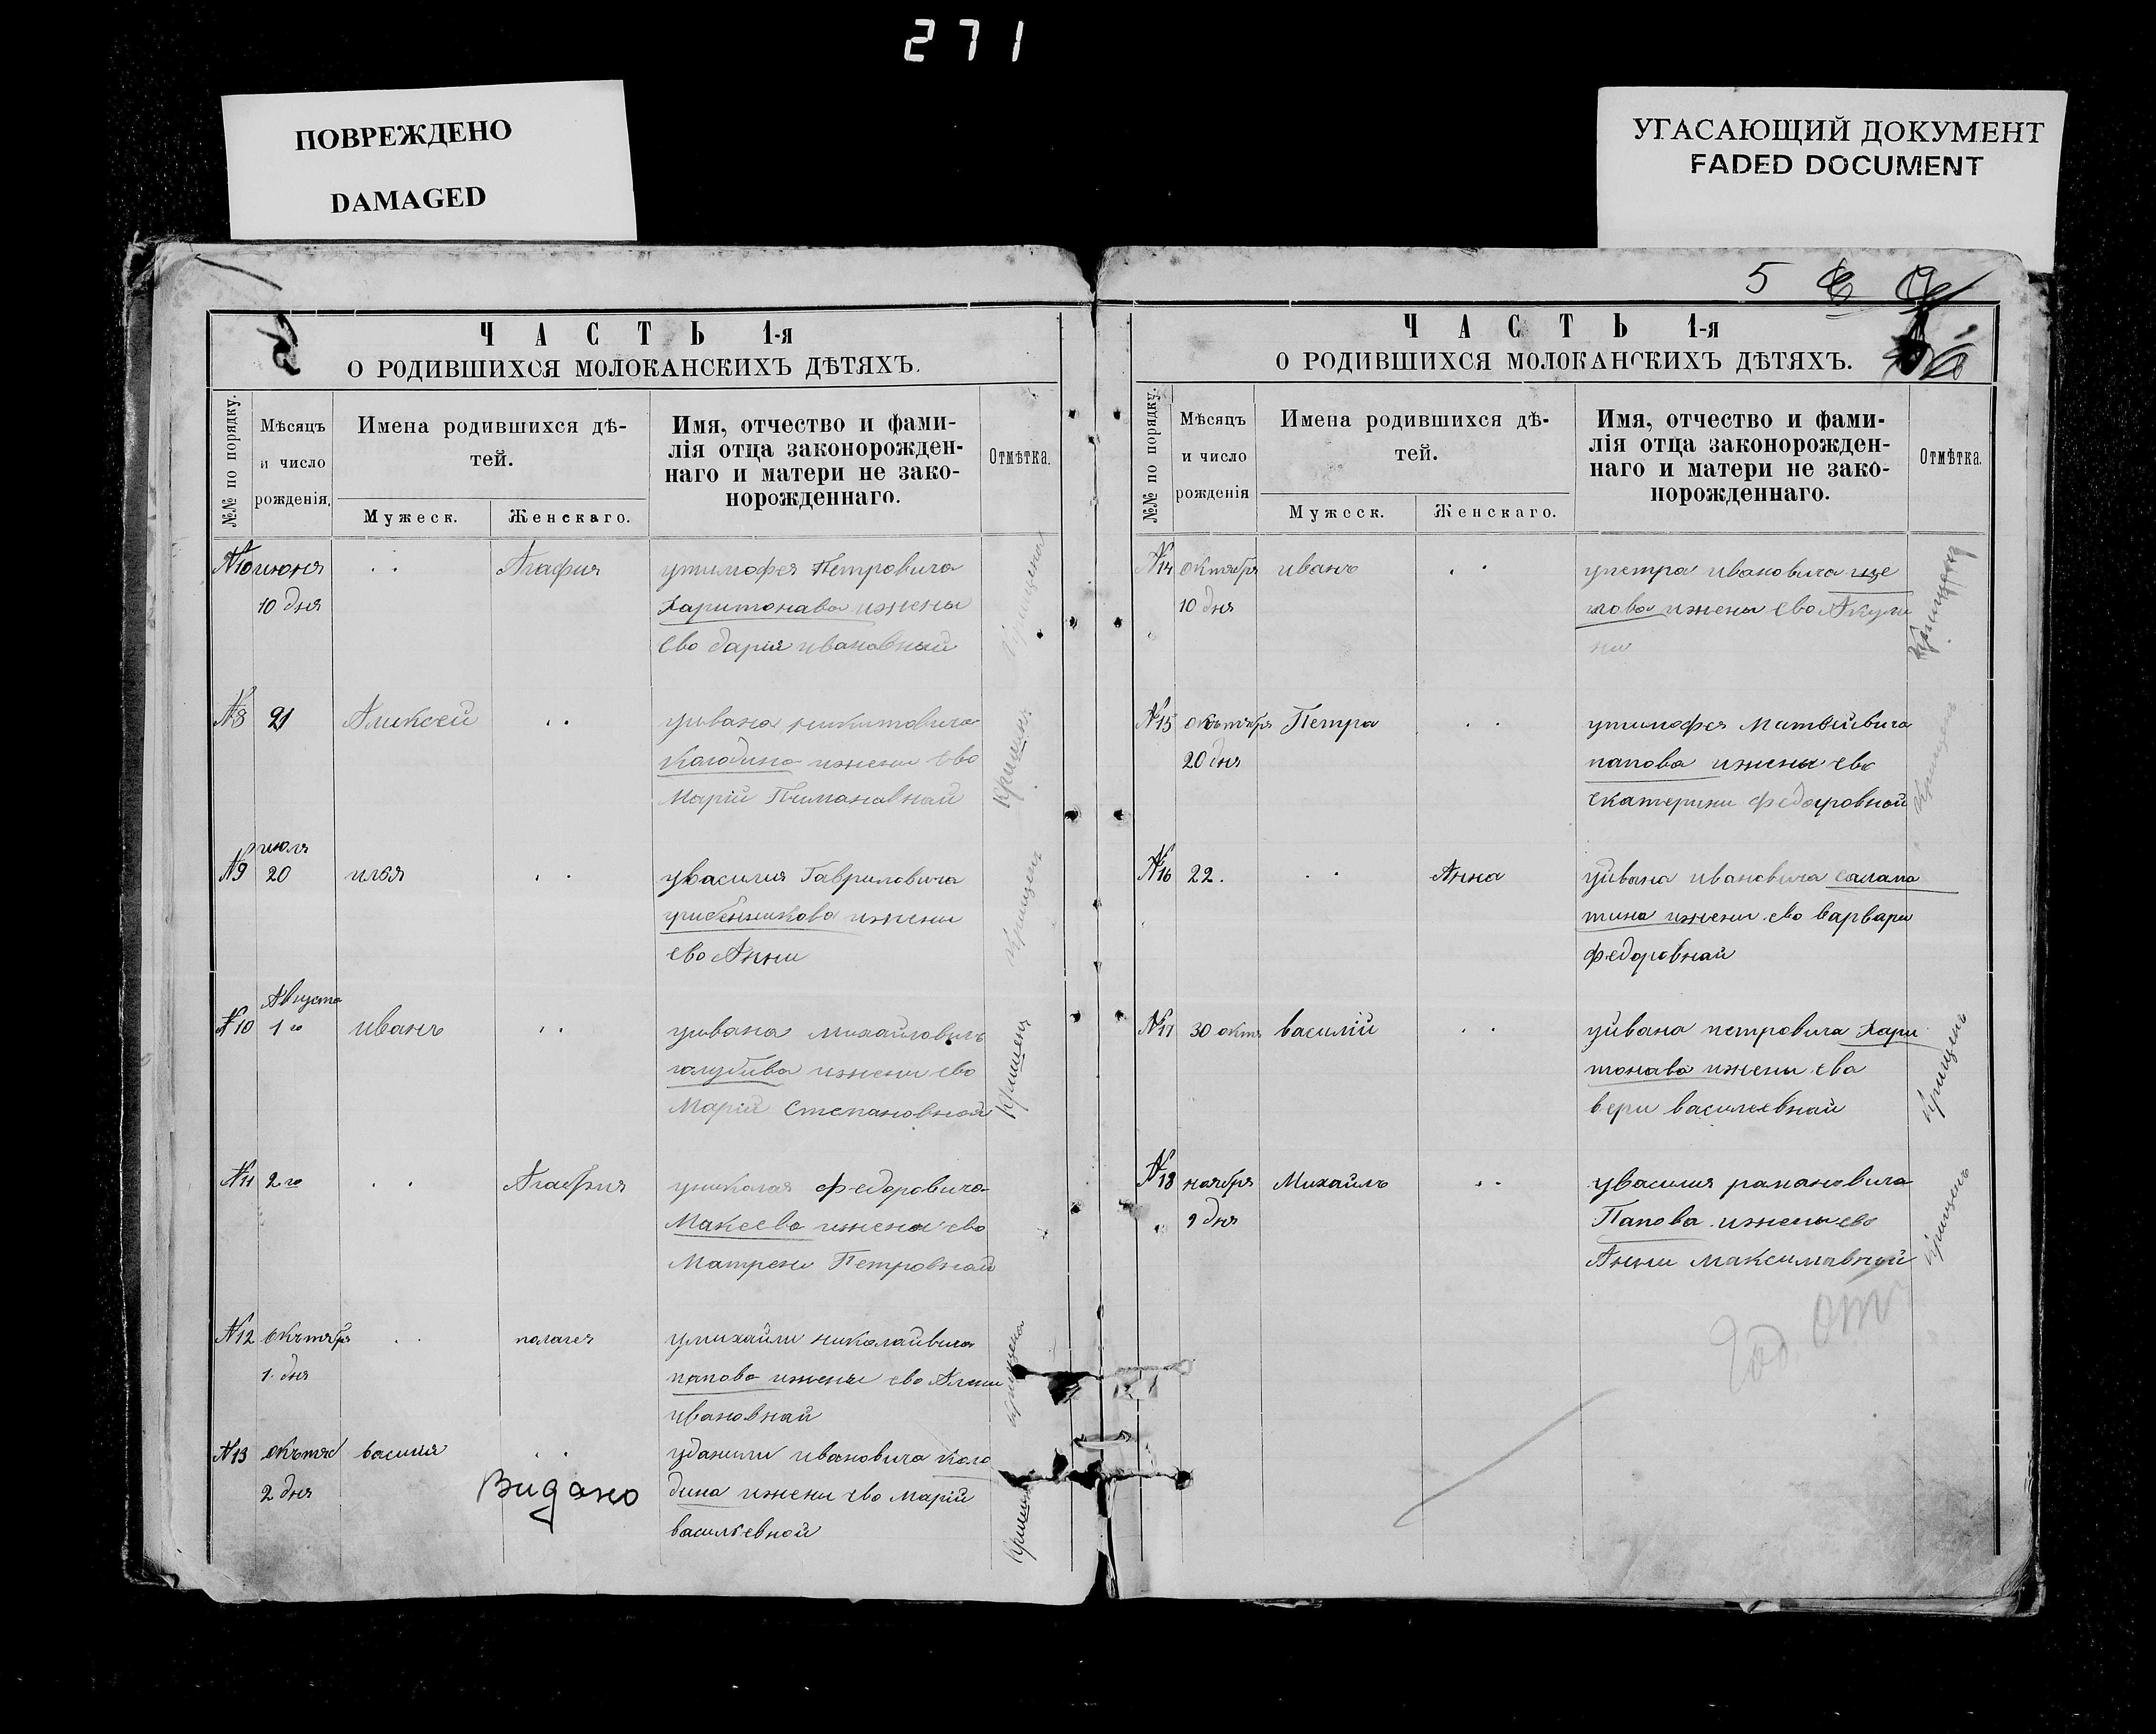 271
ПОВРЕЖДЕНО
DAMAGED
УГАСАЮЩИЙ ДОКУМЕНТ
FADED DOCUMENT
ЧАСТЬ 1-я
О РОДИВШИХСЯ МОЛОКАНСКИХЪ ДѢТЯХЪ.
№№ по порядку.
Мѣсяцъ
и число
рожденія.
Имена родившихся дѣ-
тей.
Мужеск.
Женскаго.
Имя, отчество и фами-
лія отца законорожден-
наго и матери не зако-
норожденнаго.
Отмѣтка.
июня Агафия утимофея Петровича
10 дня Харитонава ижены
ево даріи ивановнай
Крищена
№8 21 Аликсей уивана никитовича
Калодина ижени ево
Марій
Кришенъ
июля
№9 20 илья увасилия Гавриловича
грибенникова ижени
ево Анни
Крищенъ
Августа
№10 1го иванъ уивана михайловичъ
галубива ижени ево
Марій Степановнай
Кришенъ
№11 2го Агафия униколая Федоровича
Макеева ижени ево
Матрени Петровнай
№12 октября палагея умихайли николаивича
1. дня папова ижены ево Алени
ивановнай
Крищена
№13 василия уданили ивановича кало
2 дня Видано дина ижени ево Марій
васильевной
Кришенъ
5
ЧАСТЬ 1-я
О РОДИВШИХСЯ МОЛОКАНСКИХЪ ДѢТЯХЪ.
№№ по порядку.
Мѣсяцъ
и число
рожденія
Имена родившихся дѣ-
тей.
Мужеск.
Женскаго.
Имя, отчество и фами-
лія отца законорожден-
наго и матери не зако-
норожденнаго.
Отмѣтка.
№14 октября иванъ упетра ивановича ще
10 дня ижены ево Акули
ни
№15 октября Петра утимофея Матвѣйвича
20 дня папова ижены ево
екатерини Федоровной
Крищенъ
№16 22. Анна уйвана ивановича салама
тина ижени ево варвари
Федоровнай
№17 30 октя василій уйвана петровича Хари
тонава ижени ева
вери василевнай
Крищенъ
№18 ноября Михайлъ увасилия рамановича
9 дня Папова ижены ево
Анни максимавнай
Крищенъ